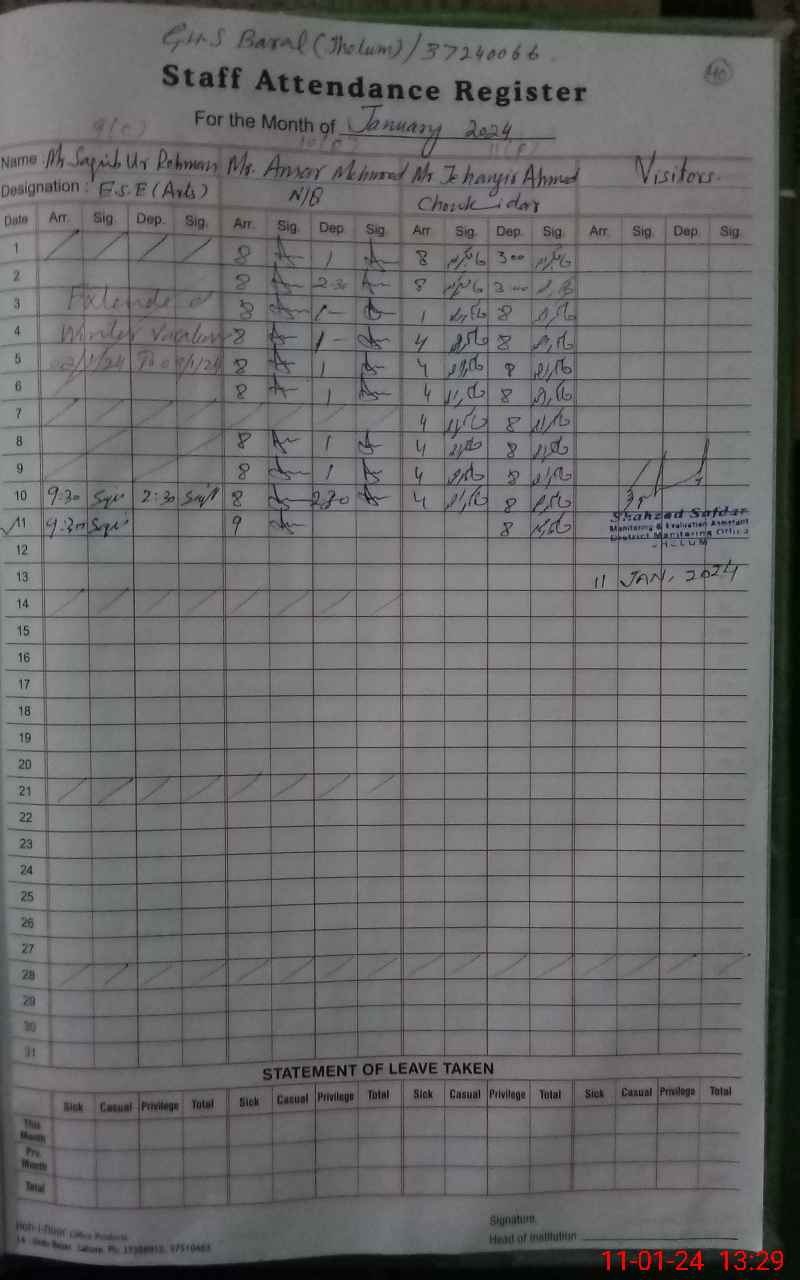 GHS Baral (Jhelum) / 37240066
40
Staff Attendance Register
For the Month of January 2024
9(c) 10(P) 11(P)
Name : Mr Saqib Ur Rehman Mr. Ansar Mehmood Mr Jehangir Ahmed Visitors.
Designation : E.S.E (Arts) N/Q Chowkidar
Date Arr. Sig. Dep. Sig. Arr. Sig. Dep. Sig. Arr. Sig. Dep. Sig. Arr. Sig. Dep. Sig.
1 8 1 8 3 00
2 8 2-30 8 3 00
3 Extended 8 1- 1 8
4 Winter Vacation 8 1- 4 8
5 02/1/24 To 09/1/24 8 1 4 8
6 8 1 4 8
7 4 8
8 8 1 4 8
9 8 1 4 8
10 9:30 Saqib 2:30 Saqib 8 2:30 4 8
11 9:30 Saqib 9 8
Shahzad Safdar
Monitoring & Evaluation Assistant
District Monitoring Office
JHELUM
12
13 11 JAN, 2024
14
15
16
17
18
19
20
21
22
23
24
25
26
27
28
29
30
31
STATEMENT OF LEAVE TAKEN
Sick Casual Privilege Total Sick Casual Privilege Total Sick Casual Privilege Total Sick Casual Privilege Total
This Month
Pre. Month
Total
Signature.
Head of Institution
Office Products
Lahore. Ph:
11-01-24 13:29